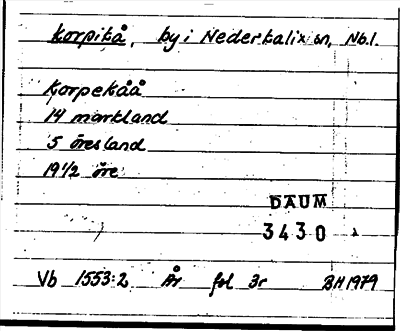 Korpikå, by i Nederkalix sn, Nb.l.
Korpekåå
14 markland
5 öresland
19 1/2 öre
DAUM
3430
Vb 1553:2 År fol 3r BH 1979